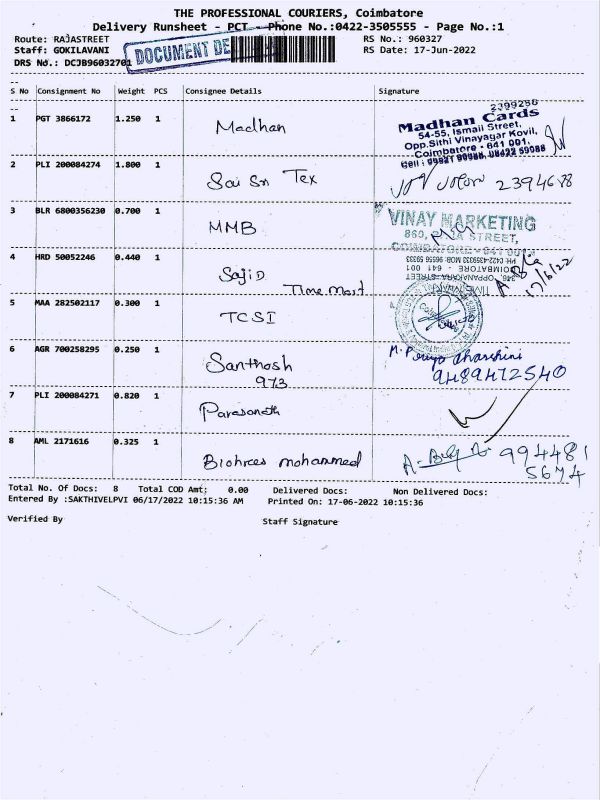 THE PROFESSIONAL COURIERS, Coimbatore
Delivery Runsheet - PCT - Phone No.:0422-3505555 - Page No.:1
Route: RAJASTREET RS No.: 960327
Staff: GOKILAVANI DOCUMENT DE RS Date: 17-Jun-2022
DRS No.: DCJB96032701
S No Consignment No Weight PCS Consignee Details Signature
1 PGT 3866172 1.250 1 Madhan
2399286
Madhan Cards
54-55, Ismail Street,
Opp.Sithi Vinayagar Kovil,
Coimbatore - 641 001.
2 PLI 200084274 1.800 1 Sai Sri Tex 2394688
3 BLR 6800356230 0.700 1 MMB
VINAY MARKETING
860, RAJA STREET,
COIMBATORE - 641 001
4 HRD 50052246 0.440 1 Sajid
Time Mart
17/6/22
346, OPPANAKARA STREET
COIMBATORE - 641 001
5 MAA 282502117 0.300 1 TCSI
6 AGR 700258295 0.250 1 Santhosh
973
M. Priya dharshini
9489472540
7 PLI 200084271 0.820 1
8 AML 2171616 0.325 1 mohammed
994481
5674
Total No. Of Docs: 8 Total COD Amt: 0.00 Delivered Docs: Non Delivered Docs:
Entered By :SAKTHIVELPVI 06/17/2022 10:15:36 AM Printed On: 17-06-2022 10:15:36
Verified By Staff Signature